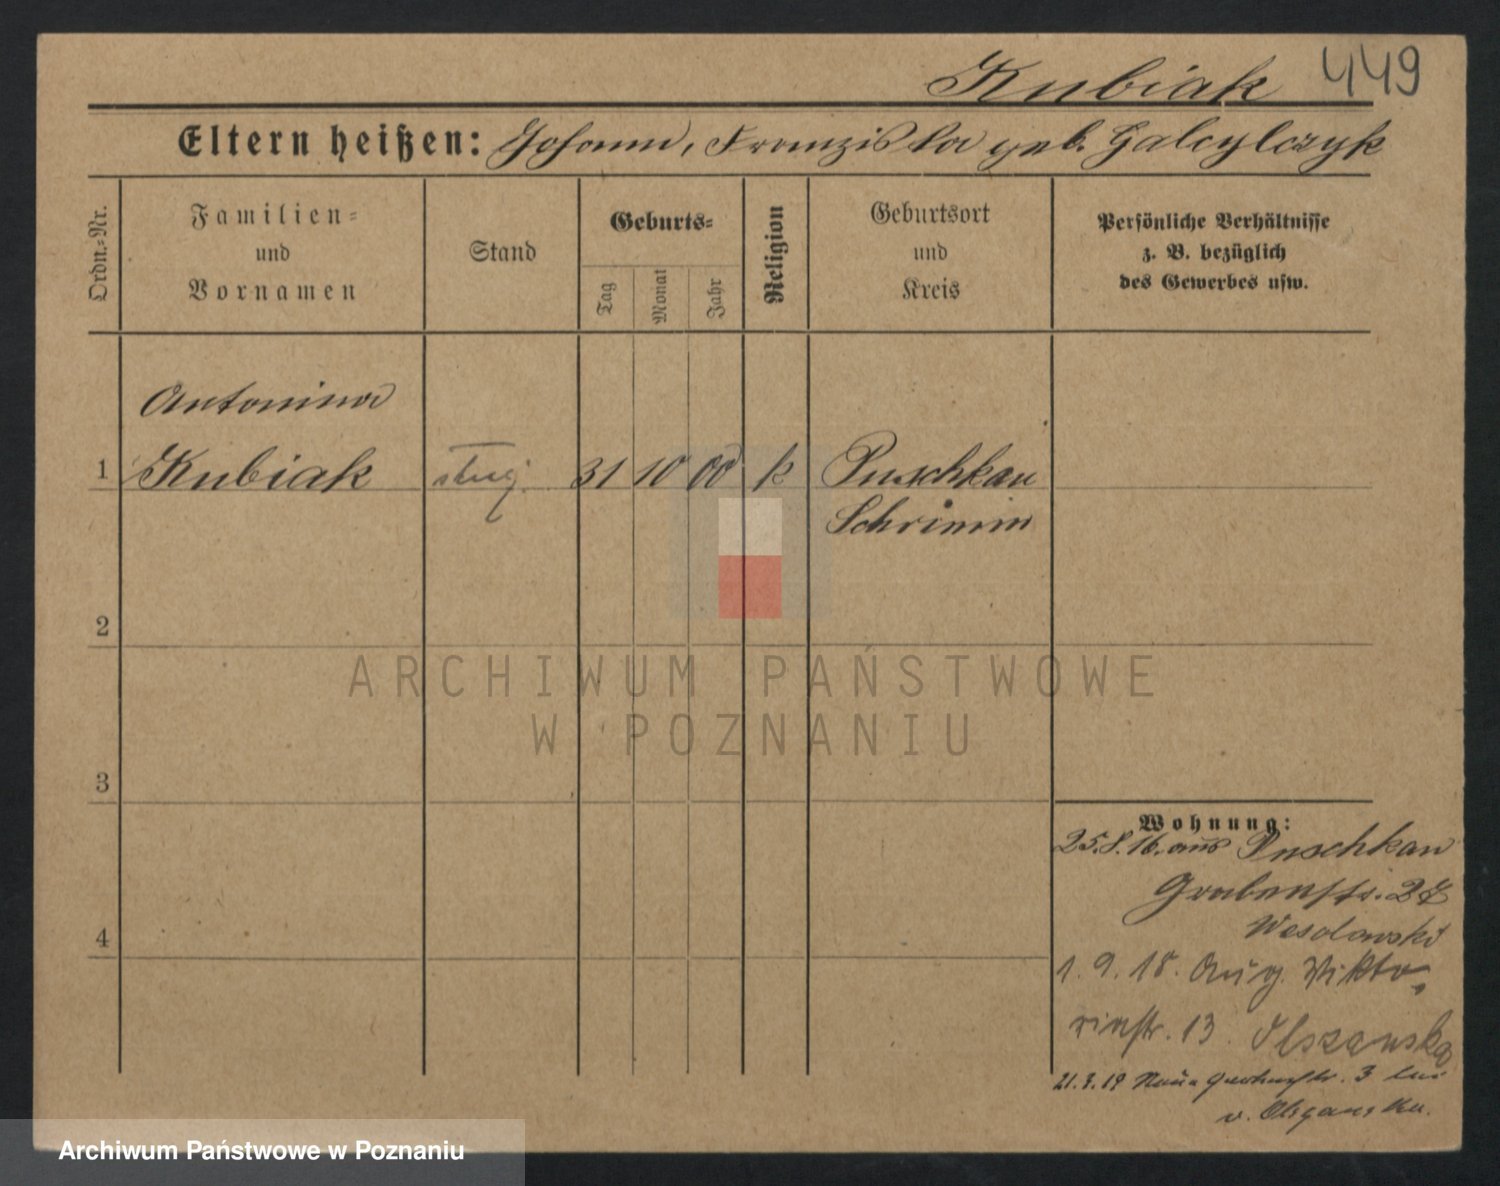 Kubiak 449
Eltern heißen: Johann, Franziska geb. Galcylczyk
Ordn.-Nr.
Familien-
und
Vornamen
Stand
Geburts-
Tag
Monat
Jahr
Religion
Geburtsort
und
Kreis
Persönliche Verhältnisse
z. B. bezüglich
des Gewerbes usw.
Antonina
1 Kubiak 31 10 00 k Puschkau
Schrimm
2
3
4
Wohnung:
25.8.16. aus Puschkau
Grabenstr. 27
Wesolowski
1. 9. 18. Aug. Vikto-
riastr. 13. Olszanska
21.3.19 Neue 3 bei
v. Olszanska.
ARCHIWUM PAŃSTWOWE
W POZNANIU
Archiwum Państwowe w Poznaniu